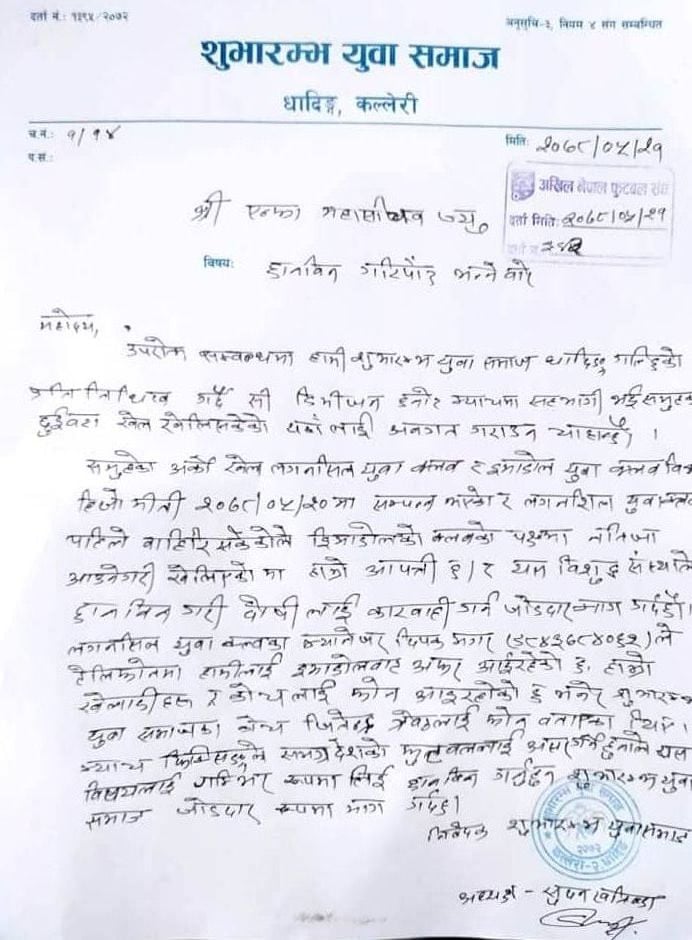 दर्ता नं.: १३९५/२०७२
अनुसुचि-३, नियम ४ संग सम्बन्धित
शुभारम्भ युवा समाज
धादिङ्ग, कल्लेरी
च.नं.: १/१४
मितिः २०७८/०५/२१
प.सं.:
अखिल नेपाल फुटबल संघ
दर्ता मितिः २०७८/०५/२१
श्री एन्फा महासचिव ज्यु,
विषयः छानविन गरिपाँउ भन्ने बारे
महोदय,
उपरोक्त सम्बन्धमा हामी शुभारम्भ युवा समाज धादिङ्ग
प्रतिनिधित्व गर्दै सी डिभीजन छनोट म्याचमा सहभागी भई समुहका
दुईवटा खेल खेलिसकेको यहाँ लाई अवगत गराउन चाहान्छौ ।
समुहको अर्को खेल लगनसिल युवा क्लव र इमाडोल युवा क्लव विच
हिजो मीती २०७८/०५/२० मा सम्पन्न भएको र लगनशिल युवा क्लव
पहिले बाहिरि सकेकोले इमाडोलको क्लवको पक्षमा नतिजा
आउनेगरी खेलिएको मा हाम्रो आपत्ती छ । र यस विशुद्ध संस्थाले
छानविन गरी दोषी लाई कारवाही गर्न जोडदार माग गर्दछौ ।
लगनसिल युवा क्लवका म्यानेजर दिपक मगर ले
टेलिफोनमा हामीलाई इमाडोलवाट अफर आईरहेको छ, हाम्रो
खेलाडीहरु र कोच लाई फोन आइरहेको छ भनेर शुभारम्भ
युवा समाजका कोच लाई फोन थियो ।
म्याच फिक्सिङले समग्र देशको फुटवललाई असर गर्ने हुनाले यस
विषयलाई गम्भिर रुपमा लिई छानविन गर्नुहुन शुभारम्भ युवा
समाज जोडदार रुपमा माग गर्दछ ।
निवेदक शुभारम्भ युवा समाज
शुभारम्भ युवा समाज
२०७२
कल्लेरी-२ धादिङ
अध्यक्ष -